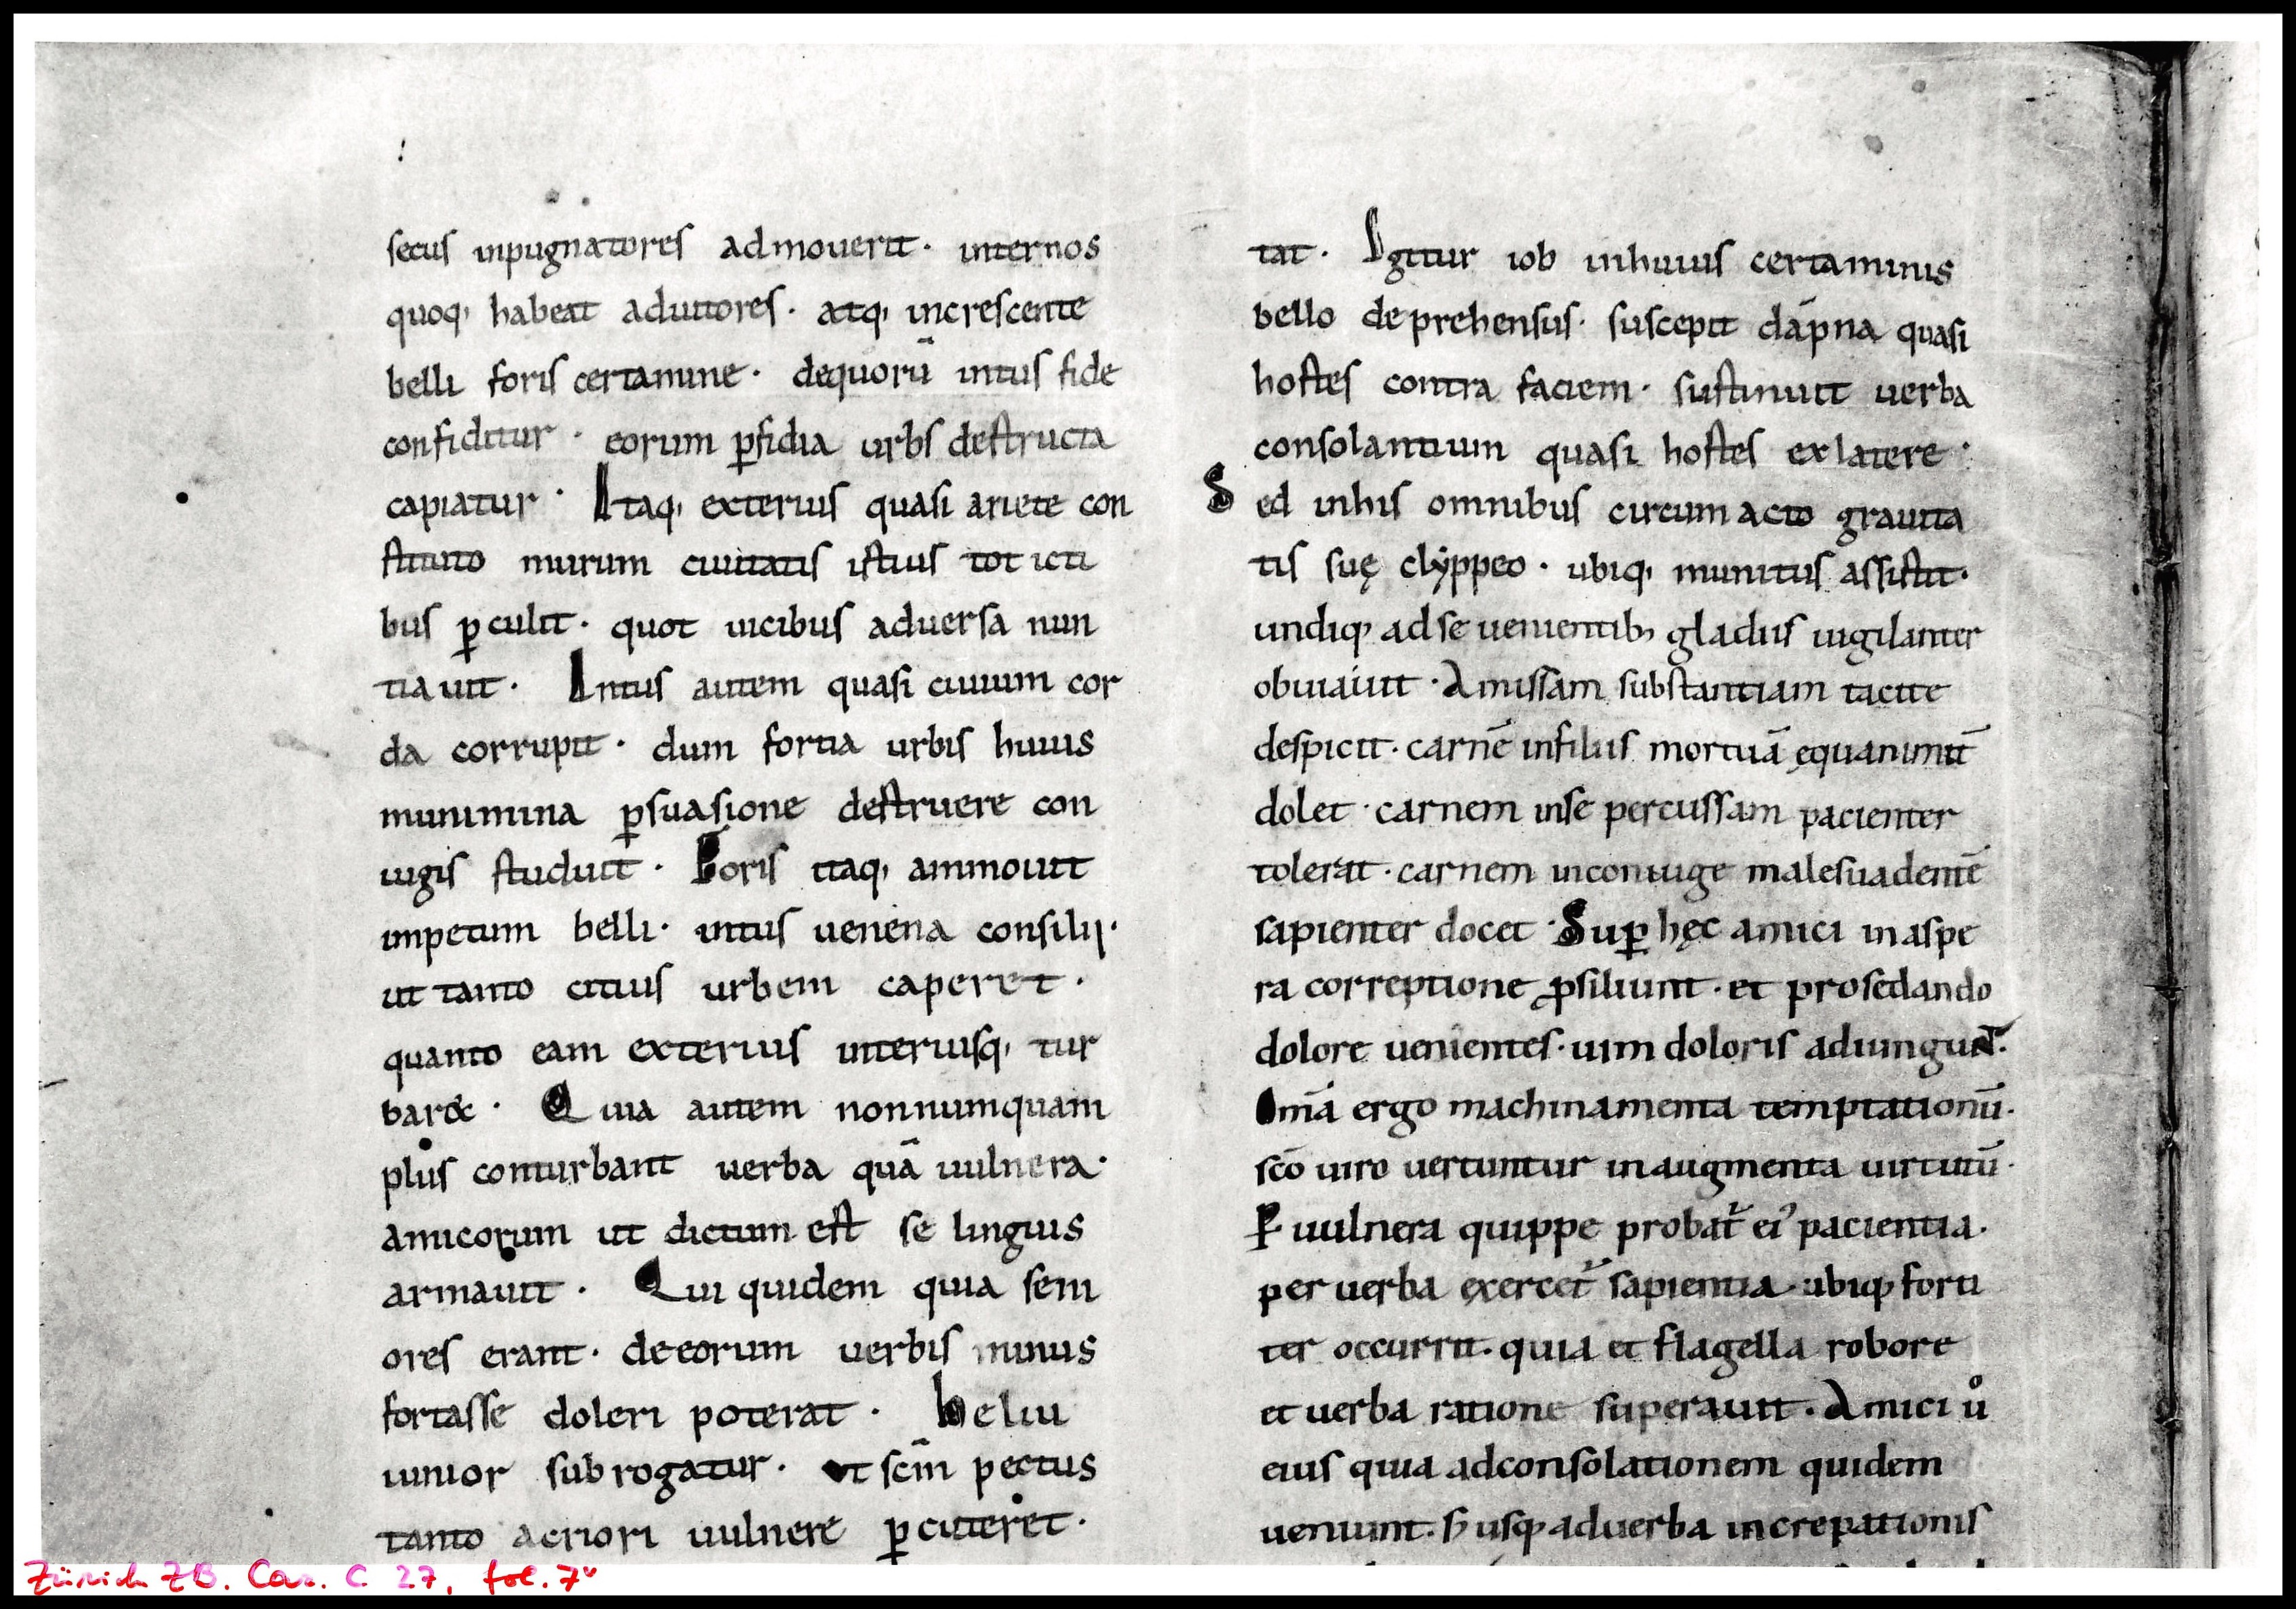 secus inpugnatores admouerit · internos
quoq; habeat adiutores · atq; increscente
belli foris certamine · dequorū intus fide
confiditur · eorum ꝑfidia urbs destructa
capiatur · Itaq; exterius quasi ariete con
stituto murum ciuitatis istius tot icti
bus ꝑculit · quot uicibus aduersa nun
tiauit · Intus autem quasi ciuium cor
da corrupit · dum fortia urbis huius
munimina ꝑsuasione destruere con
iugis studuit · Foris itaq; ammouit
impetum belli · intus uenena consilii ·
ut tanto citius urbem caperet ·
quanto eam exterius interiusq; tur
bar& · Quia autem nonnumquam
plus conturbant uerba quā uulnera ·
amicorum ut dictum est se linguis
armauit · Qui quidem quia seni
ores erant · deeorum uerbis minus
fortasse doleri poterat · heliu
iunior subrogatur · ut scm̄ pectus
tanto acriori uulnere ꝑcuteret ·
tat · Igitur iob inhuius certaminis
bello deprehensus · suscepit dápna quasi
hostes contra faciem · sustinuit uerba
consolantium quasi hostes exlatere ·
Sed inhis omnibus circumacto grauita
tis suę clẏppeo · ubiq; munitus assistit ·
undiq; adse uenientib; gladiis uigilanter
obuiauit · Amissam substantiam tacite
despicit · carnē infiliis mortuā ęquanimit̄
dolet · carnem inse percussam pacienter
tolerat · carnem inconiuge malesuadentē
sapienter docet · Suꝑ hęc amici inaspe
ra correptione ꝓsiliunt · et prosedando
dolore uenientes · uim doloris adiungunt ·
Om̄a ergo machinamenta temptationū ·
sc̄o uiro uertuntur inaugmenta uirtutū ·
Ꝑ uulnera quippe probat̄ ei᾽ pacientia ·
per uerba exercet̄ sapientia · ubiq; forti
ter occurrit · quia et flagella robore
et uerba ratione superauit · Amici uͦ
eius quia adconsolationem quidem
ueniunt · s; usq; aduerba increpationis
Zürich ZB. Car. C 27, fol. 7v